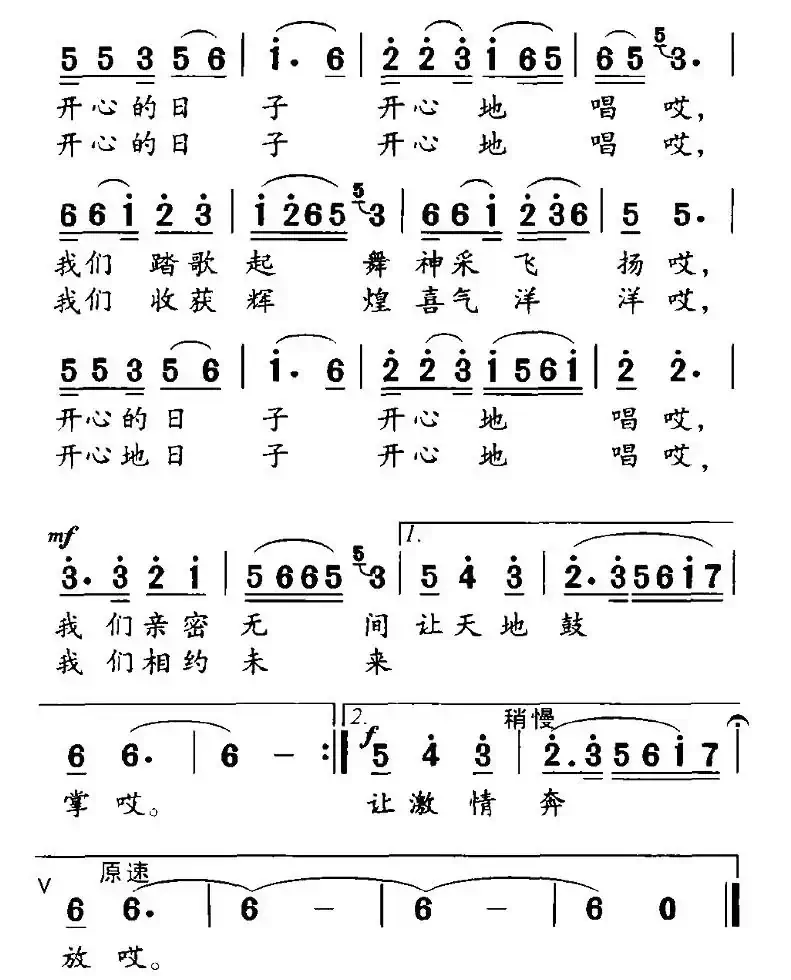 5 5 3 5 6 | i. 6 | 2 2 3 i 6 5 | 6 5 5 3. |
开心的日 子 开心 地 唱 哎，
开心的日 子 开心 地 唱 哎，
6 6 i 2 3 | i 2 6 5 5 3 | 6 6 i 2 3 6 | 5 5. |
我们 踏歌 起 舞 神采 飞 扬 哎，
我们 收获 辉 煌 喜气 洋 洋 哎，
5 5 3 5 6 | i. 6 | 2 2 3 i 5 6 i | 2 2. |
开心的日 子 开心 地 唱 哎，
开心地日 子 开心 地 唱 哎，
mf 1.
3. 3 2 i | 5 6 6 5 5 3 | 5 4 3 | 2. 3 5 6 i 7 |
我 们 亲密 无 间 让天 地 鼓
我 们 相约 未 来
2. f 稍慢
6 6. | 6 – :‖ 5 4 3 | 2. 3 5 6 i 7 |
掌 哎。 让激 情 奔
V 原速
6 6. | 6 – | 6 – | 6 0 ‖
放 哎。